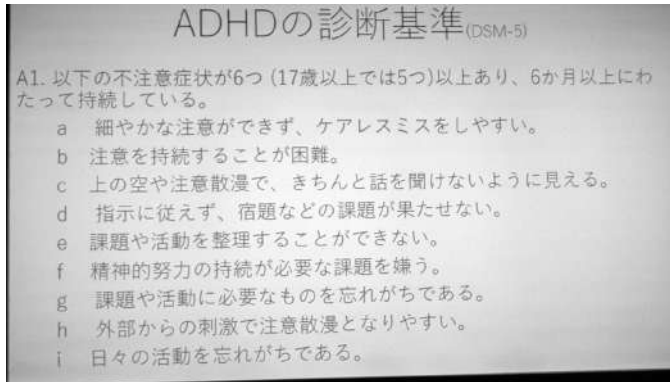 ADHDの診断基準(DSM-5)
A1. 以下の不注意症状が6つ (17歳以上では5つ)以上あり、6か月以上にわ
たって持続している。
a 細やかな注意ができず、ケアレスミスをしやすい。
b 注意を持続することが困難。
c 上の空や注意散漫で、きちんと話を聞けないように見える。
d 指示に従えず、宿題などの課題が果たせない。
e 課題や活動を整理することができない。
f 精神的努力の持続が必要な課題を嫌う。
g 課題や活動に必要なものを忘れがちである。
h 外部からの刺激で注意散漫となりやすい。
i 日々の活動を忘れがちである。